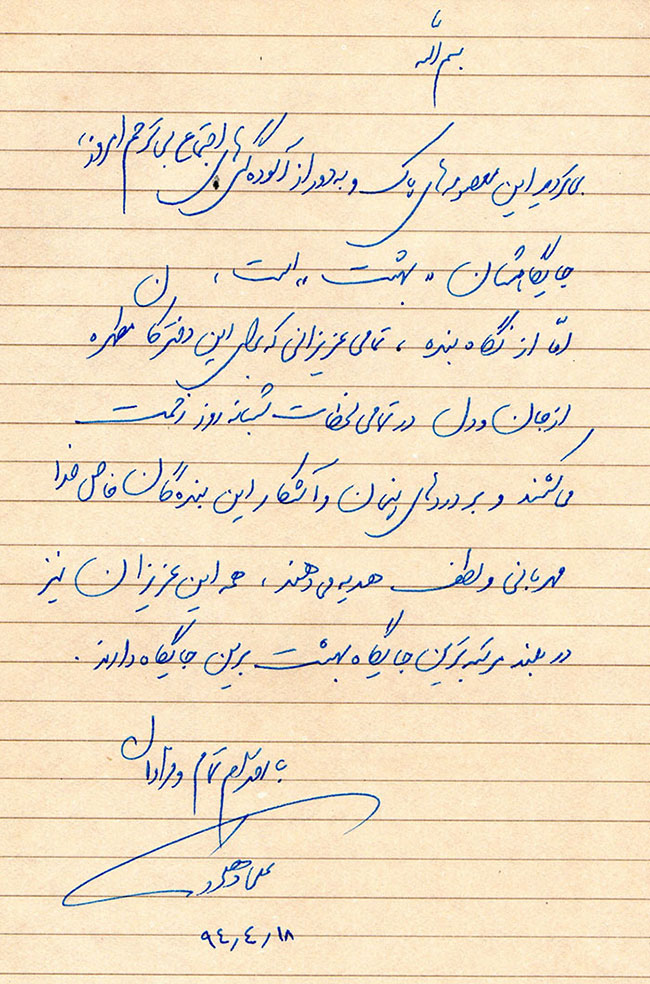 بسم الله
بی‌تردید این معصوم‌های پاک و به‌دور از آلودگی‌های اجتماع بی‌ترحم امروز،
جایگاهشان "بهشت" است،
امّا از نگاه بنده، تمامی عزیزانی که برای این
از جان و دل در تمامی لحظات شبانه روز زحمت
می‌کشند و بر دردهای پنهان و آشکار این بنده‌گان خاص خدا
مهربانی و لطف هدیه می‌دهند، همه این عزیزان نیز
در بلند مرتبه‌ترین جایگاه بهشت برین جایگاه دارند.
با احترام تمام و فراوان
علی
۹۴٫۴٫۱۸